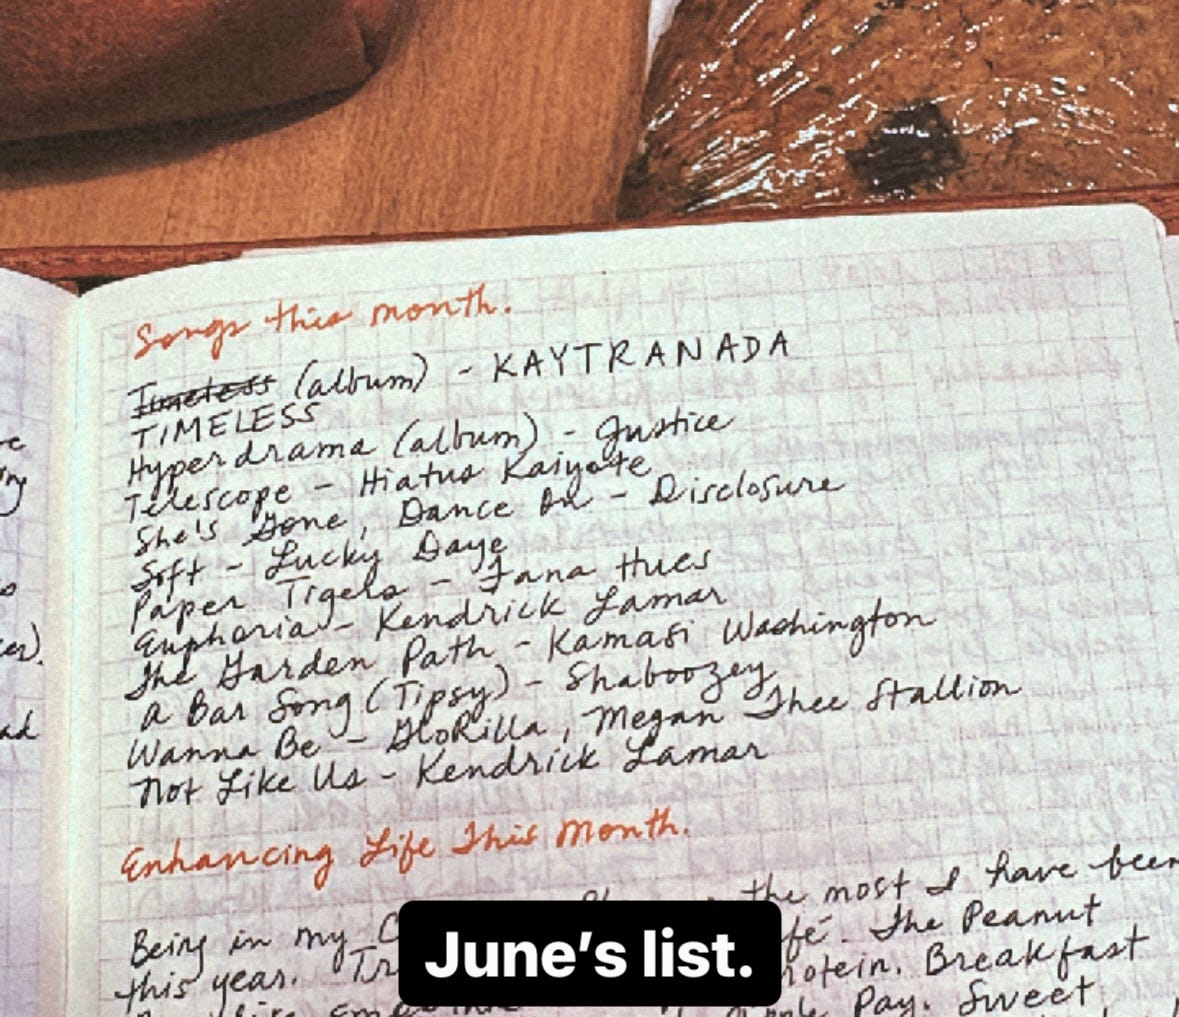 Songs this month.
Timeless (album) - KAYTRANADA
TIMELESS
Hyperdrama (album) - Justice
Telescope - Hiatus Kaiyote
She's Gone, Dance On - Disclosure
Soft - Lucky Daye
Paper Tigers - Fana Hues
Euphoria - Kendrick Lamar
The Garden Path - Kamasi Washington
A Bar Song (Tipsy) - Shaboozey
Wanna Be - GloRilla, Megan Thee Stallion
Not Like Us - Kendrick Lamar
Enhancing Life This Month.
Being in my the most I have been
this year. The Peanut
Breakfast
Pay. Sweet
June's list.